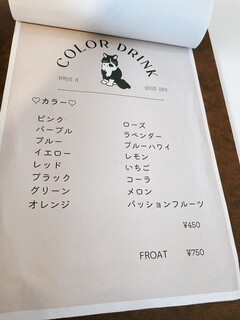 COLOR DRINK
HAVE A GOOD DAY
♡カラー♡
ピンク ローズ
パープル ラベンダー
ブルー ブルーハワイ
イエロー レモン
レッド いちご
ブラック コーラ
グリーン メロン
オレンジ パッションフルーツ
¥450
FROAT ¥750